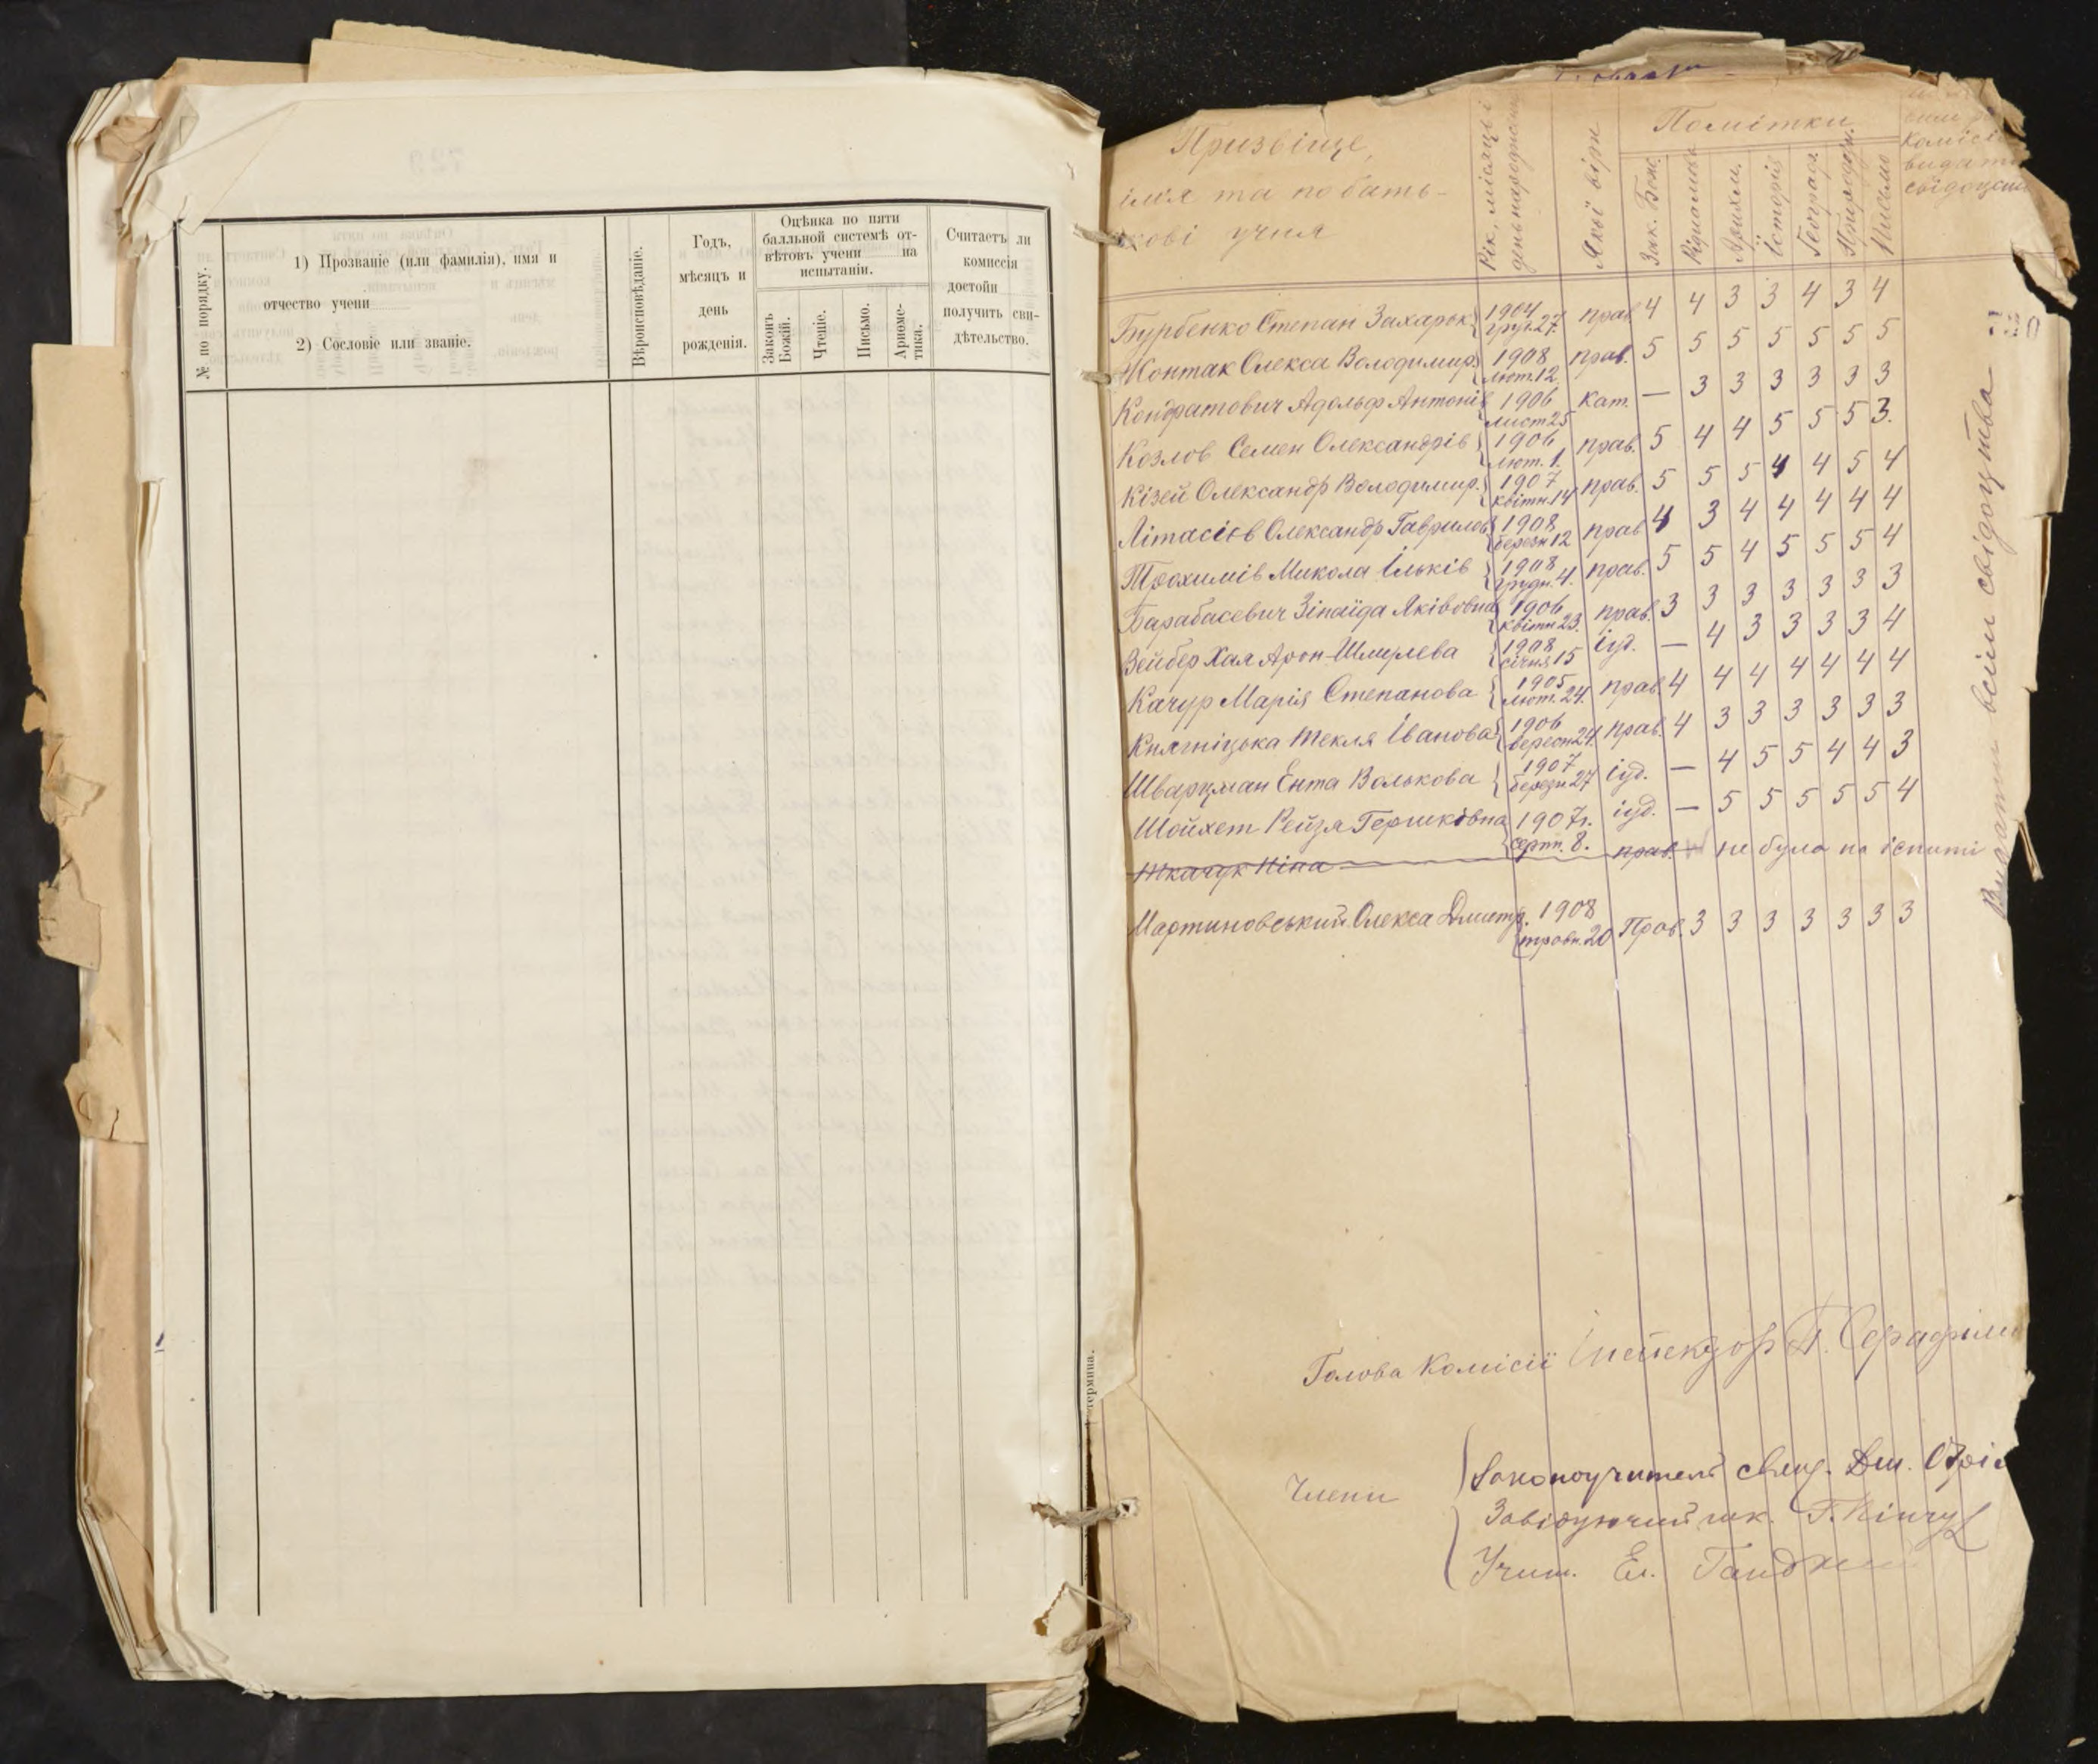 № по порядку.
1) Прозваніе (или фамилія), имя и
отчество учени
2) Сословіе или званіе.
Вѣроисповѣданіе.
Годъ,
мѣсяцъ и
день
рожденія.
Оцѣнка по пяти
балльной системѣ от-
вѣтовъ учени на
испытаніи.
Законъ Божій.
Чтеніе.
Письмо.
Ариѳме-тика.
Считаетъ ли
комиссія
достойн
получить сви-
дѣтельство.
Призвіще,
імя та по бать-
кові учня
Рік, місяць і
день народження
Якої віри
Помітки
Зак. Бож.
Рідна мова
Аритм.
Історія
Географ.
Природозн.
Письмо
комісії
видати
свідоцтв
Бурбенко Степан Захарок 1904 груд. 27 прав. 4 4 3 3 4 3 4
Жонтак Олекса Володимир. 1908 лют. 12 прав. 5 5 5 5 5 5 5
Кондратович Адольф Антонів 1906 лист 25 кат. — 3 3 3 3 3 3
Козлов Семен Олександрів 1906 лют. 1. прав. 5 4 4 5 5 5 3.
Кізей Олександр Володимир. 1907 квітн. 14 прав. 5 5 5 4 4 5 4
Літасієв Олександр Гаврилов 1908 березн 12 прав 4 3 4 4 4 4 4
Трохимів Микола Ільків 1908 грудн. 4. прав. 5 5 4 5 5 5 4
Барабасевич Зінаїда Яківовна 1906 квітн 23. прав. 3 3 3 3 3 3 3
Зейбер Хая Арон-Шмулева 1908 січня 15 іуд. — 4 3 3 3 3 4
Качур Марія Степанова 1905 лют. 24. прав. 4 4 4 4 4 4 4
Княгніцька Текля Іванова 1906 вересн 24. прав. 4 3 3 3 3 3 3
Шварцман Ента Волькова 1907 березн 27 іуд. — 4 5 5 4 4 3
Шойхет Рейзя Гершківна 1907 г. серпн. 8. іуд. — 5 5 5 5 5 4
Ткачук Ніна прав. не була на іспиті
Мартиновський Олекса Дмитр. 1908 травн. 20 Прав. 3 3 3 3 3 3 3
Видати всім свідоцтва
Голова Комісії Інспектор
Члени
Законоучитель свящ. Дм.
Завідуючий шк. Г.
Учит. Ел.